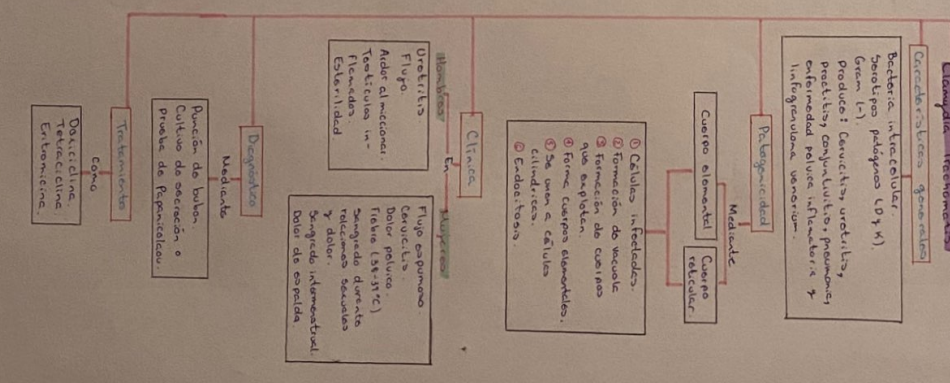 Características generales
Bacteria intracelular.
Serotipos patogenos (D y K).
Gram (-).
produce: Cervicitis, uretritis,
proctitis, conjuntivitis, pneumonia,
enfermedad pelvica inflamatoria y
linfogranuloma venerium.
Patogenicidad
Mediante
Cuerpo elemental
Cuerpo
reticular.
① Células infectadas.
② Formación de vacuola
③ Formación de cuerpos
que explotan.
④ Forma cuerpos elementales.
⑤ Se unen a células
cilíndricas.
⑥ Endocitosis.
Clínica
En
Hombres
Uretritis
Flujo.
Ardor al miccionar.
Testiculos in-
flamados.
Esterilidad
Mujeres
Flujo espumoso.
Cervicitis.
Dolor pelvico
Fiebre (38-39°C)
Sangrado durante
relaciones sexuales
y dolor.
Sangrado intermenstrual.
Dolor de espalda
Diagnóstico
Mediante
Punción de bubon
Cultivo de secreción o
prueba de Papanicolaou.
Tratamiento
como
Doxiciclina
Tetraciclina
Eritromicina.